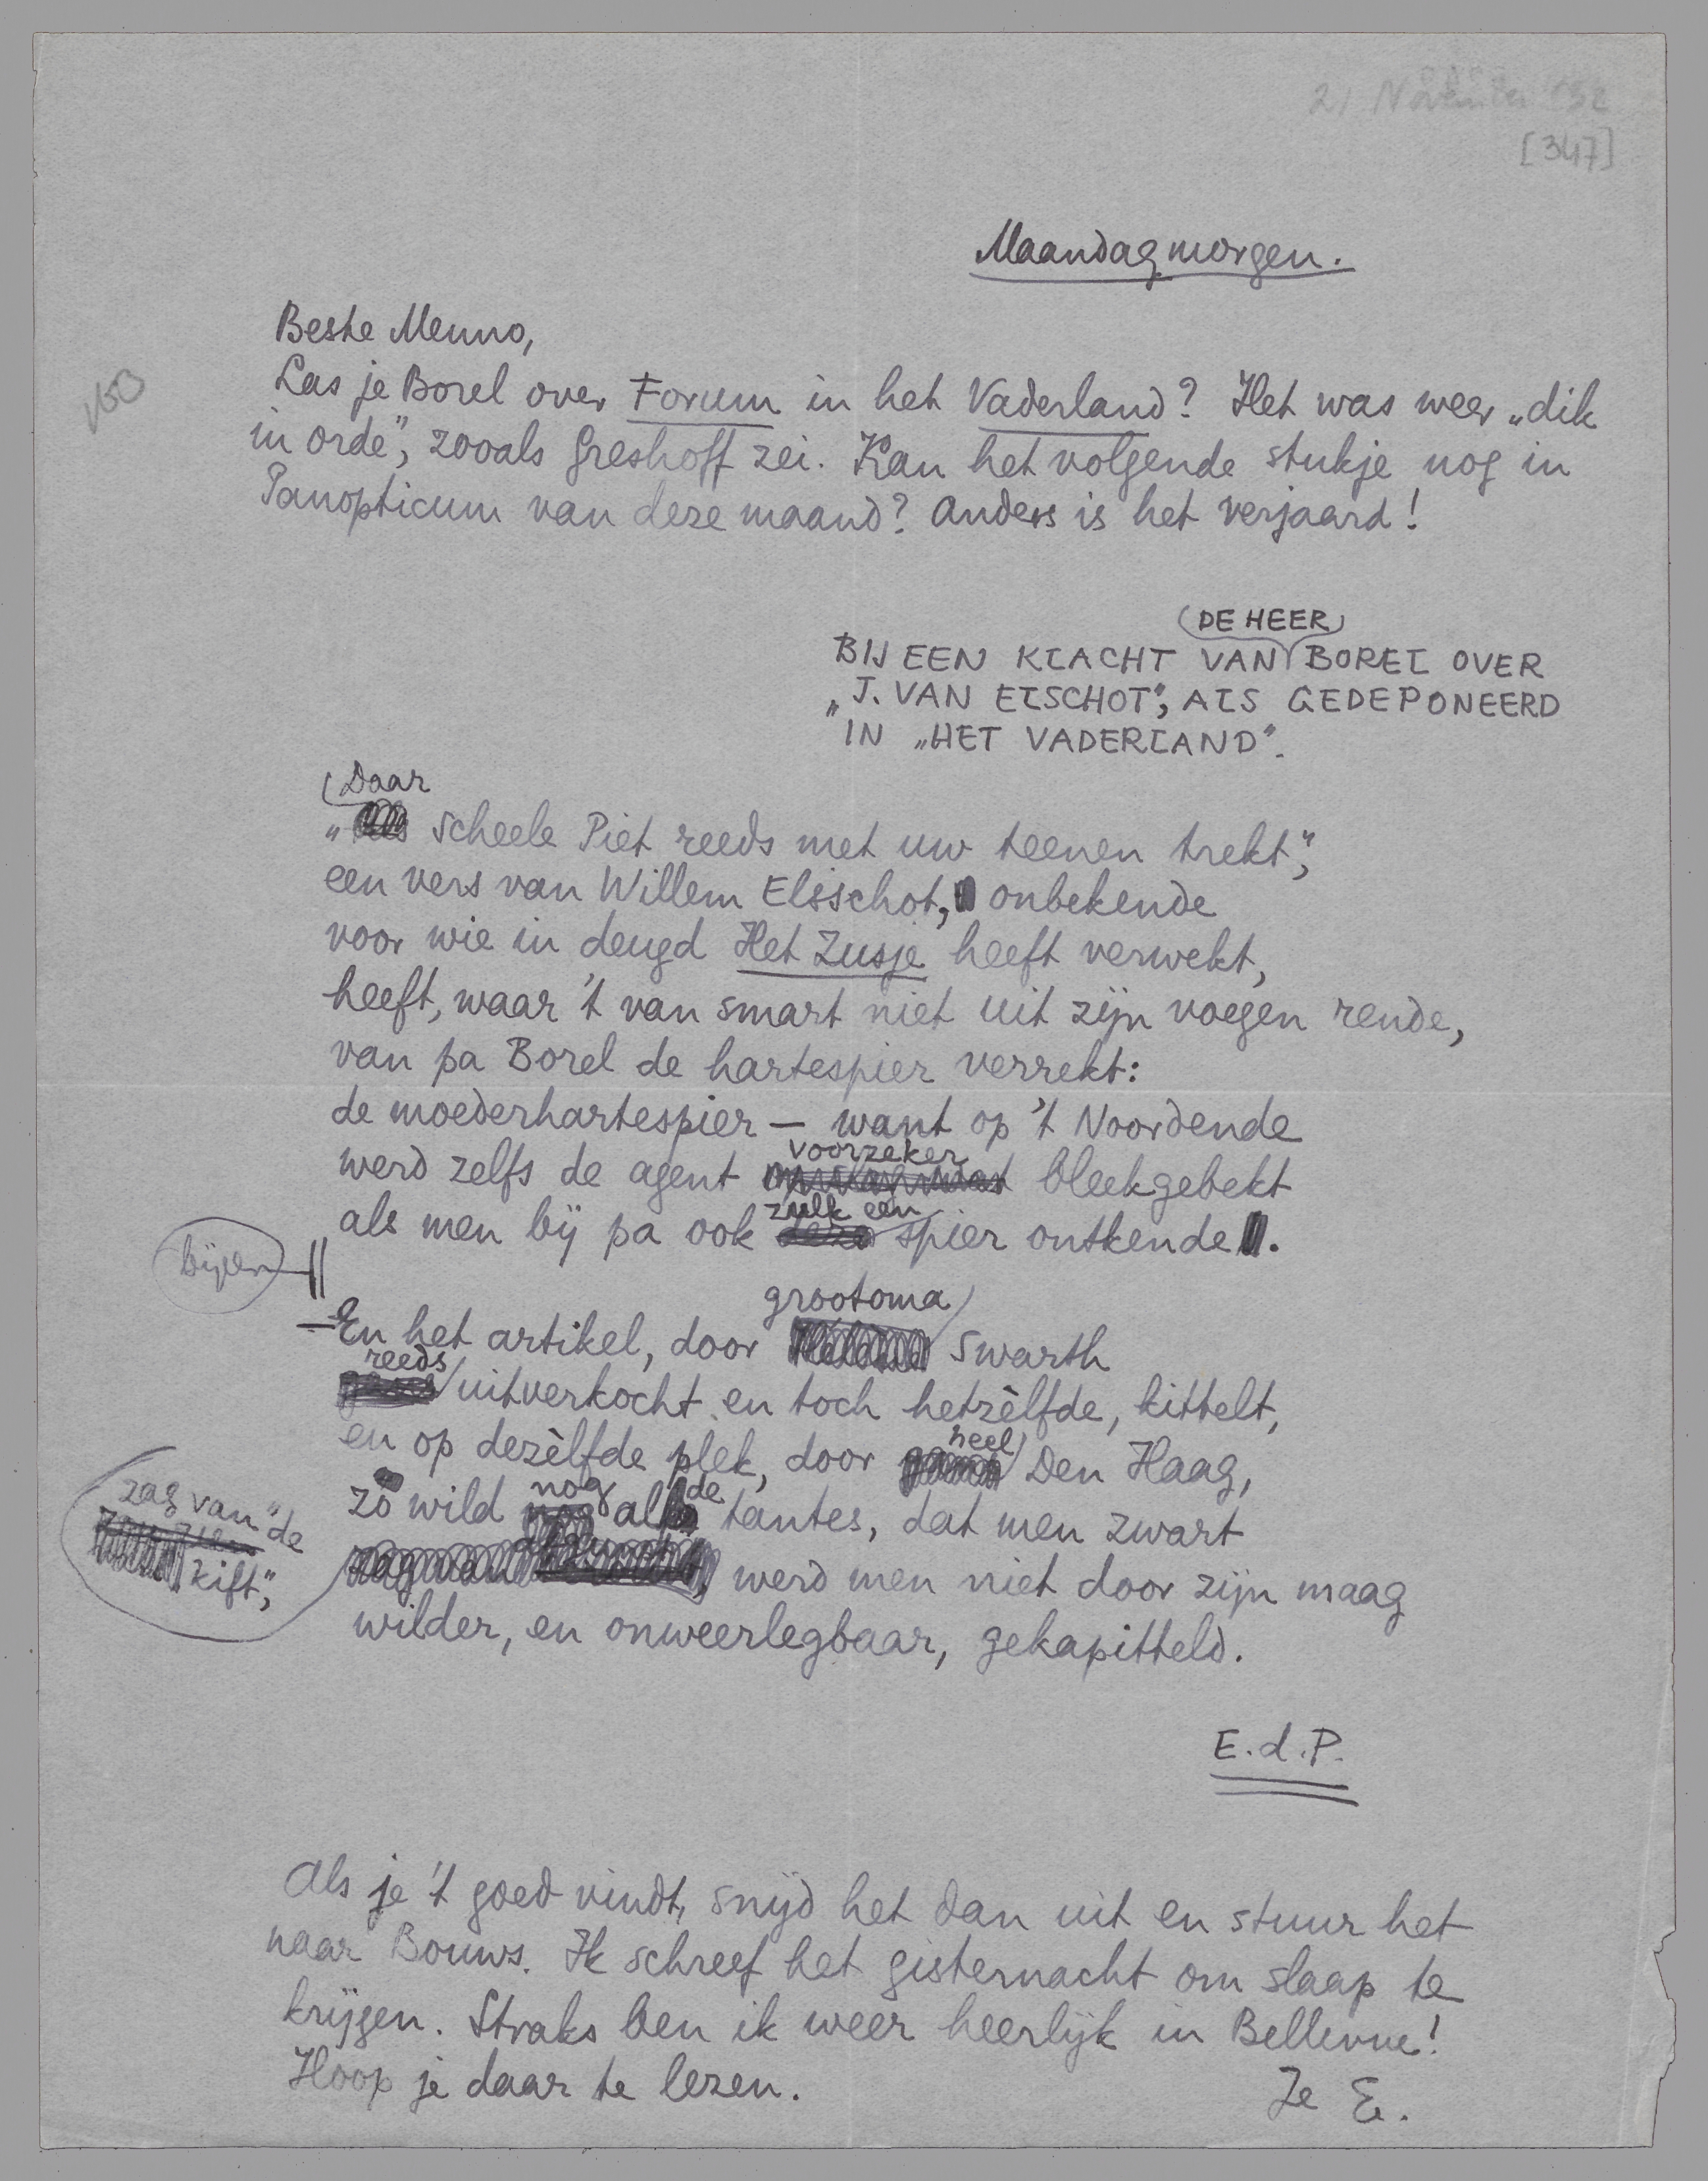 21 November '32
[347]
Maandagmorgen.
Beste Menno,
Las je Borel over Forum in het Vaderland? Het was weer „dik
in orde”, zooals Greshoff zei. Kan het volgende stukje nog in
Panopticum van deze maand? Anders is het verjaard!
DE HEER
BIJ EEN KLACHT VAN BOREL OVER
„J. VAN ELSCHOT”, ALS GEDEPONEERD
IN „HET VADERLAND”.
Daar
„ Scheele Piet reeds met uw teenen trekt”,
een vers van Willem Elsschot, onbekende
voor wie in deugd Het Zusje heeft verwekt,
heeft, waar 't van smart niet uit zijn voegen rende,
van pa Borel de hartespier verrekt:
de moederhartespier — want op 't Noordende
voorzeker
werd zelfs de agent bleekgebekt
zulk een
als men bij pa ook spier ontkende.
bijen
grootoma
—En het artikel, door Swarth
reeds
uitverkocht en toch hetzèlfde, kittelt,
heel
en op dezèlfde plek, door Den Haag,
nog de
zo wild al tantes, dat men zwart
zag van „de
kift”,
werd men niet door zijn maag
wilder, en onweerlegbaar, gekapitteld.
E.d.P.
Als je 't goed vindt, snijd het dan uit en stuur het
naar Bouws. Ik schreef het gisternacht om slaap te
krijgen. Straks ben ik weer heerlijk in Bellevue!
Hoop je daar te lezen.
Je E.